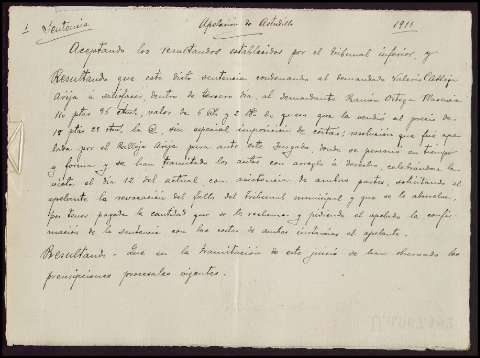 1 Sentencia Apelación de Astudillo 1911
Aceptando los resultandos establecidos por el Tribunal inferior, y
Resultando que este dictó sentencia condenando al demandado Valerio Rebollar
á satisfacer, dentro de tercero dia, al demandante Ramón Ortega
110 ptas 35 ctms, valor de 6 @, y 2 de queso que le vendió al precio de
18 ptas 25 ctms. la @, sin especial imposición de costas; resolución que fué ape-
lada por el Rebollar para ante este Juzgado, donde se personó en tiempo
y forma y se han tramitado los autos con arreglo á derecho, celebrándose la
vista el dia 12 del actual con asistencia de ambas partes, solicitando el
apelante la revocación del fallo del Tribunal municipal y que se le absuelva,
por tener pagada la cantidad que se le reclama y pidiendo el apelado la confir-
mación de la sentencia con las costas de ambas instancias al apelante.
Resultando. Que en la tramitación de este juicio se han observado las
prescripciones procesales vigentes.